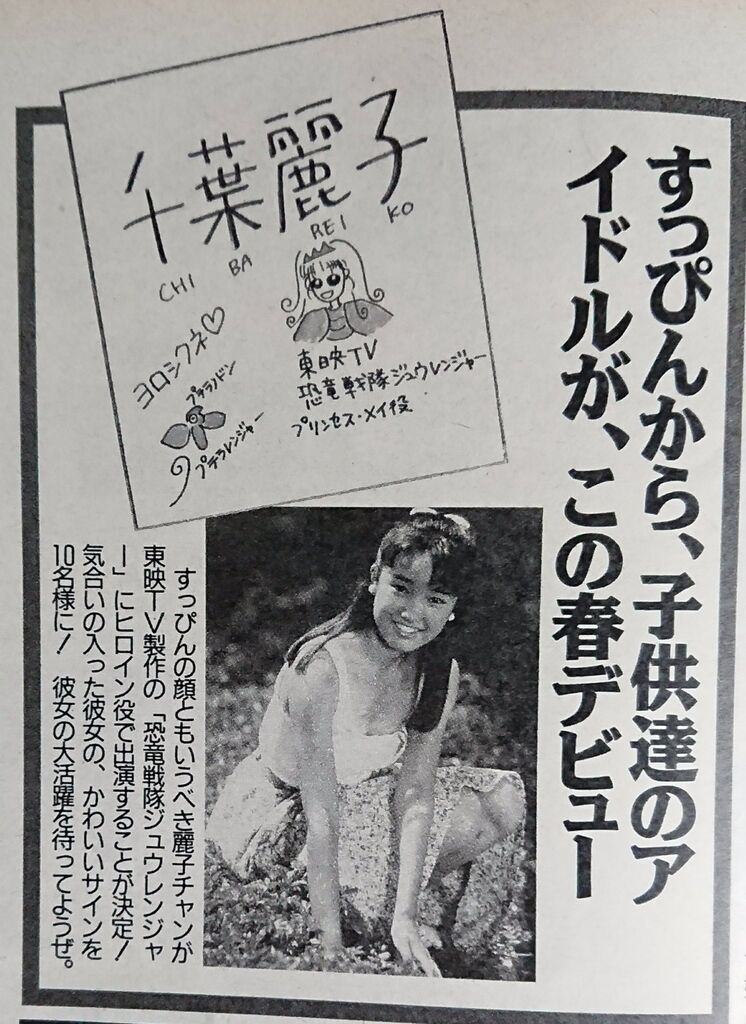 すっぴんから、子供達のア
イドルが、この春デビュー
千葉麗子
CHI BA REI KO
ヨロシクネ♡
プテラノドン
プテラレンジャー
東映TV
恐竜戦隊ジュウレンジャー
プリンセス・メイ役
すっぴんの顔ともいうべき麗子チャンが
東映TV製作の「恐竜戦隊ジュウレンジャ
ー」にヒロイン役で出演することが決定！
気合いの入った彼女の、かわいいサインを
10名様に！　彼女の大活躍を待ってようぜ。